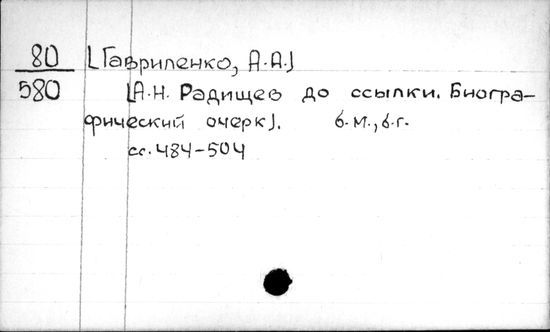 80 [Гавриленко, А.А.]
580 [А.Н. Радищев до ссылки. Биогра-
фический очерк]. б.м., б.г.
сс. 484-504